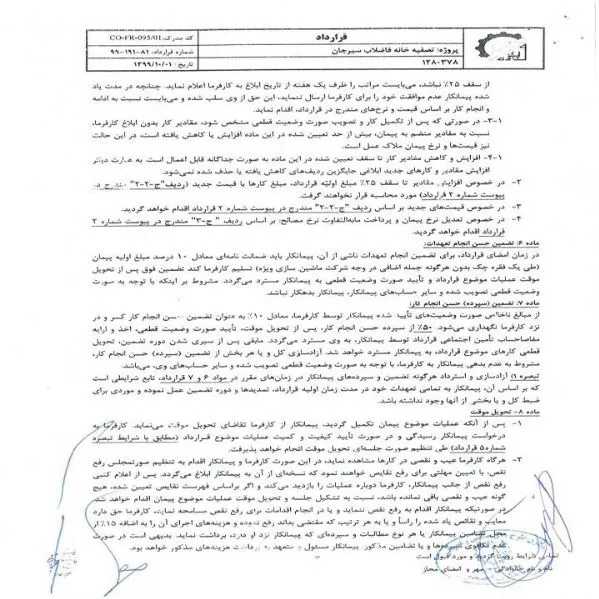 قرارداد
کد مدرک: CO-FR-095/01
پروژه: تصفیه خانه فاضلاب سیرجان
شماره قرارداد: ۸۲-۱۹۱-۹۹
۱۲۸-۳۷۸
تاریخ: ۱۳۹۹/۱۰/۰۱
از سقف ۲۵٪ نباشد، بایست مراتب را ظرف یک هفته از تاریخ ابلاغ به کارفرما اعلام نماید. چنانچه در مدت یاد
شده پیمانکار عدم موافقت خود را برای کارفرما ارسال ننماید، این حق از وی سلب شده و می‌بایست نسبت به ادامه
و انجام کار بر اساس قیمت و نرخ‌های مندرج در قرارداد، اقدام نماید.
۱-۳- در صورتی که پس از تکمیل کار و تصویب صورت وضعیت قطعی مشخص شود، مقادیر کار بدون ابلاغ کارفرما،
نسبت به مقادیر منضم به پیمان، بیش از حد تعیین شده در این ماده افزایش یا کاهش یافته است، در این حالت
نیز قیمت‌ها و نرخ پیمان ملاک عمل است.
۱-۴- افزایش و کاهش مقادیر کار تا سقف تعیین شده در این ماده به صورت جداگانه قابل اعمال است. به عبارت دیگر
افزایش مقادیر و کارهای جدید ابلاغی جایگزین ردیف‌های کاهش یافته یا حذف شده نمی‌شود.
۲- در خصوص افزایش مقادیر تا سقف ۲۵٪ مبلغ اولیه قرارداد، مبلغ کارها با قیمت جدید (ردیف "ج-۲-۲" مندرج در
پیوست شماره ۲ قرارداد) مورد محاسبه قرار نخواهند گرفت.
۳- در خصوص قیمت‌های جدید بر اساس ردیف "ج-۲-۲" مندرج در پیوست شماره ۲ قرارداد اقدام خواهد گردید.
۴- در خصوص تعدیل نرخ پیمان و پرداخت مابه‌التفاوت نرخ مصالح، بر اساس ردیف "ج-۳" مندرج در پیوست شماره ۲
قرارداد اقدام خواهد گردید.
ماده ۶: تضمین حسن انجام تعهدات:
در زمان امضای قرارداد، برای تضمین انجام تعهدات ناشی از آن، پیمانکار باید ضمانت نامه‌ای معادل ۱۰ درصد مبلغ اولیه پیمان
(طی یک فقره چک بدون هرگونه جمله اضافی در وجه شرکت ماشین سازی ویژه) تسلیم کارفرما کند تضمین فوق پس از تحویل
موقت عملیات موضوع قرارداد و تأیید صورت وضعیت قطعی به پیمانکار مسترد می‌گردد. مشروط بر اینکه با توجه به صورت
وضعیت قطعی تصویب شده و سایر حساب‌های پیمانکار، پیمانکار بدهکار نباشد.
ماده ۷: تضمین (سپرده) حسن انجام کار:
از مبلغ ناخالص صورت وضعیت‌های تأیید شده پیمانکار توسط کارفرما، معادل ۱۰٪ به عنوان تضمین حسن انجام کار کسر و در
نزد کارفرما نگهداری می‌شود. ۵۰٪ از سپرده حسن انجام کار، پس از تحویل موقت، تأیید صورت وضعیت قطعی، اخذ و ارایه
مفاصاحساب تأمین اجتماعی قرارداد توسط پیمانکار، به وی مسترد می‌گردد. مابقی پس از سپری شدن دوره تضمین، تحویل
قطعی کارهای موضوع قرارداد، به پیمانکار مسترد خواهد شد. آزادسازی کل و یا هر بخش از تضمین (سپرده) حسن انجام کار،
مشروط به عدم بدهی پیمانکار به کارفرما، با توجه به صورت وضعیت قطعی تصویب شده و سایر حساب‌های وی، می‌باشد.
تبصره ۱) آزادسازی و استرداد هرگونه تضمین و سپرده‌های پیمانکار در زمان‌های مقرر در مواد ۶ و ۷ قرارداد، تابع شرایطی است
که بر اساس آن، پیمانکار به تمامی تعهدات خود در مدت زمان اولیه قرارداد، تمدیدها و دوره تضمین عمل نموده و موردی برای
ضبط کل و یا بخشی از آنها وجود نداشته باشد.
ماده ۸- تحویل موقت
۱- پس از آنکه عملیات موضوع پیمان تکمیل گردید، پیمانکار از کارفرما تقاضای تحویل موقت می‌نماید. کارفرما به
درخواست پیمانکار رسیدگی و در صورت تأیید کیفیت و کمیت عملیات موضوع قرارداد (مطابق با شرایط تبصره
شماره ۵ قرارداد) طی تنظیم صورت جلسه‌ای تحویل موقت انجام خواهد پذیرفت.
۲- هرگاه کارفرما عیب و نقصی در کارها مشاهده نماید، در این صورت کارفرما و پیمانکار اقدام به تنظیم صورتمجلس رفع
نقص، با تعیین مهلتی برای رفع نقایص خواهند نمود که نسخه‌ای از آن به پیمانکار ابلاغ می‌گردد. پس از اعلام کتبی
رفع نقص از جانب پیمانکار، کارفرما دوباره عملیات را بازدید می‌کند و اگر براساس فهرست نقایص تعیین شده، هیچ
گونه عیب و نقصی باقی نمانده باشد، نسبت به تشکیل جلسه و تحویل موقت عملیات موضوع پیمان اقدام خواهد شد.
در صورتیکه پیمانکار اقدام به رفع نقص ننماید و یا در انجام اقدامات برای رفع نقص مسامحه نماید، کارفرما حق دارد
معایب و نقائص یاد شده را راساً و یا به هر ترتیب که مقتضی بداند رفع نموده و هزینه‌های اجرای آن را به اضافه ۱۵٪ از
محل تضامین پیمانکار یا هر نوع مطالبات و سپرده‌ای که پیمانکار نزد او دارد، برداشت نماید. بدیهی است در صورت
عدم تکافوی سپرده‌ها و یا تضامین مذکور، پیمانکار مسئول و متعهد به پرداخت هزینه‌های مذکور خواهد بود.
تمامی شرایط رویت گردید و مورد قبول است
نام و نام خانوادگی- مهر و امضای مجاز